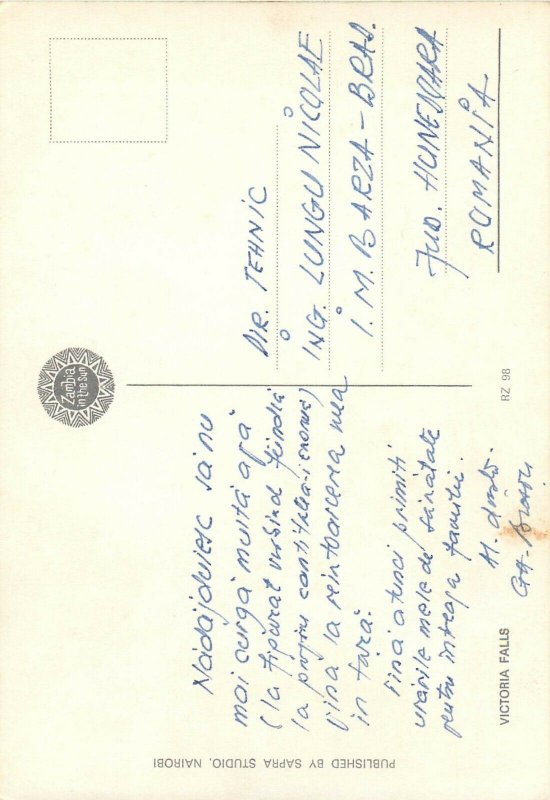 Nădăjduiesc să nu
mai curgă multă apă
(la figurat vorbind fiindcă
la propriu cantitatea-i enormă)
pînă la reîntoarcerea mea
în țară.
Pînă atunci primiți
urările mele de sănătate
pentru întreaga familie.
Al dvs.
Gh.
VICTORIA FALLS
PUBLISHED BY SAPRA STUDIO, NAIROBI
Zambia
in the Sun
RZ 98
DIR. TEHNIC
ING. LUNGU NICOLAE
I. M. BARZA – BRAD.
JUD. HUNEDOARA
ROMANIA